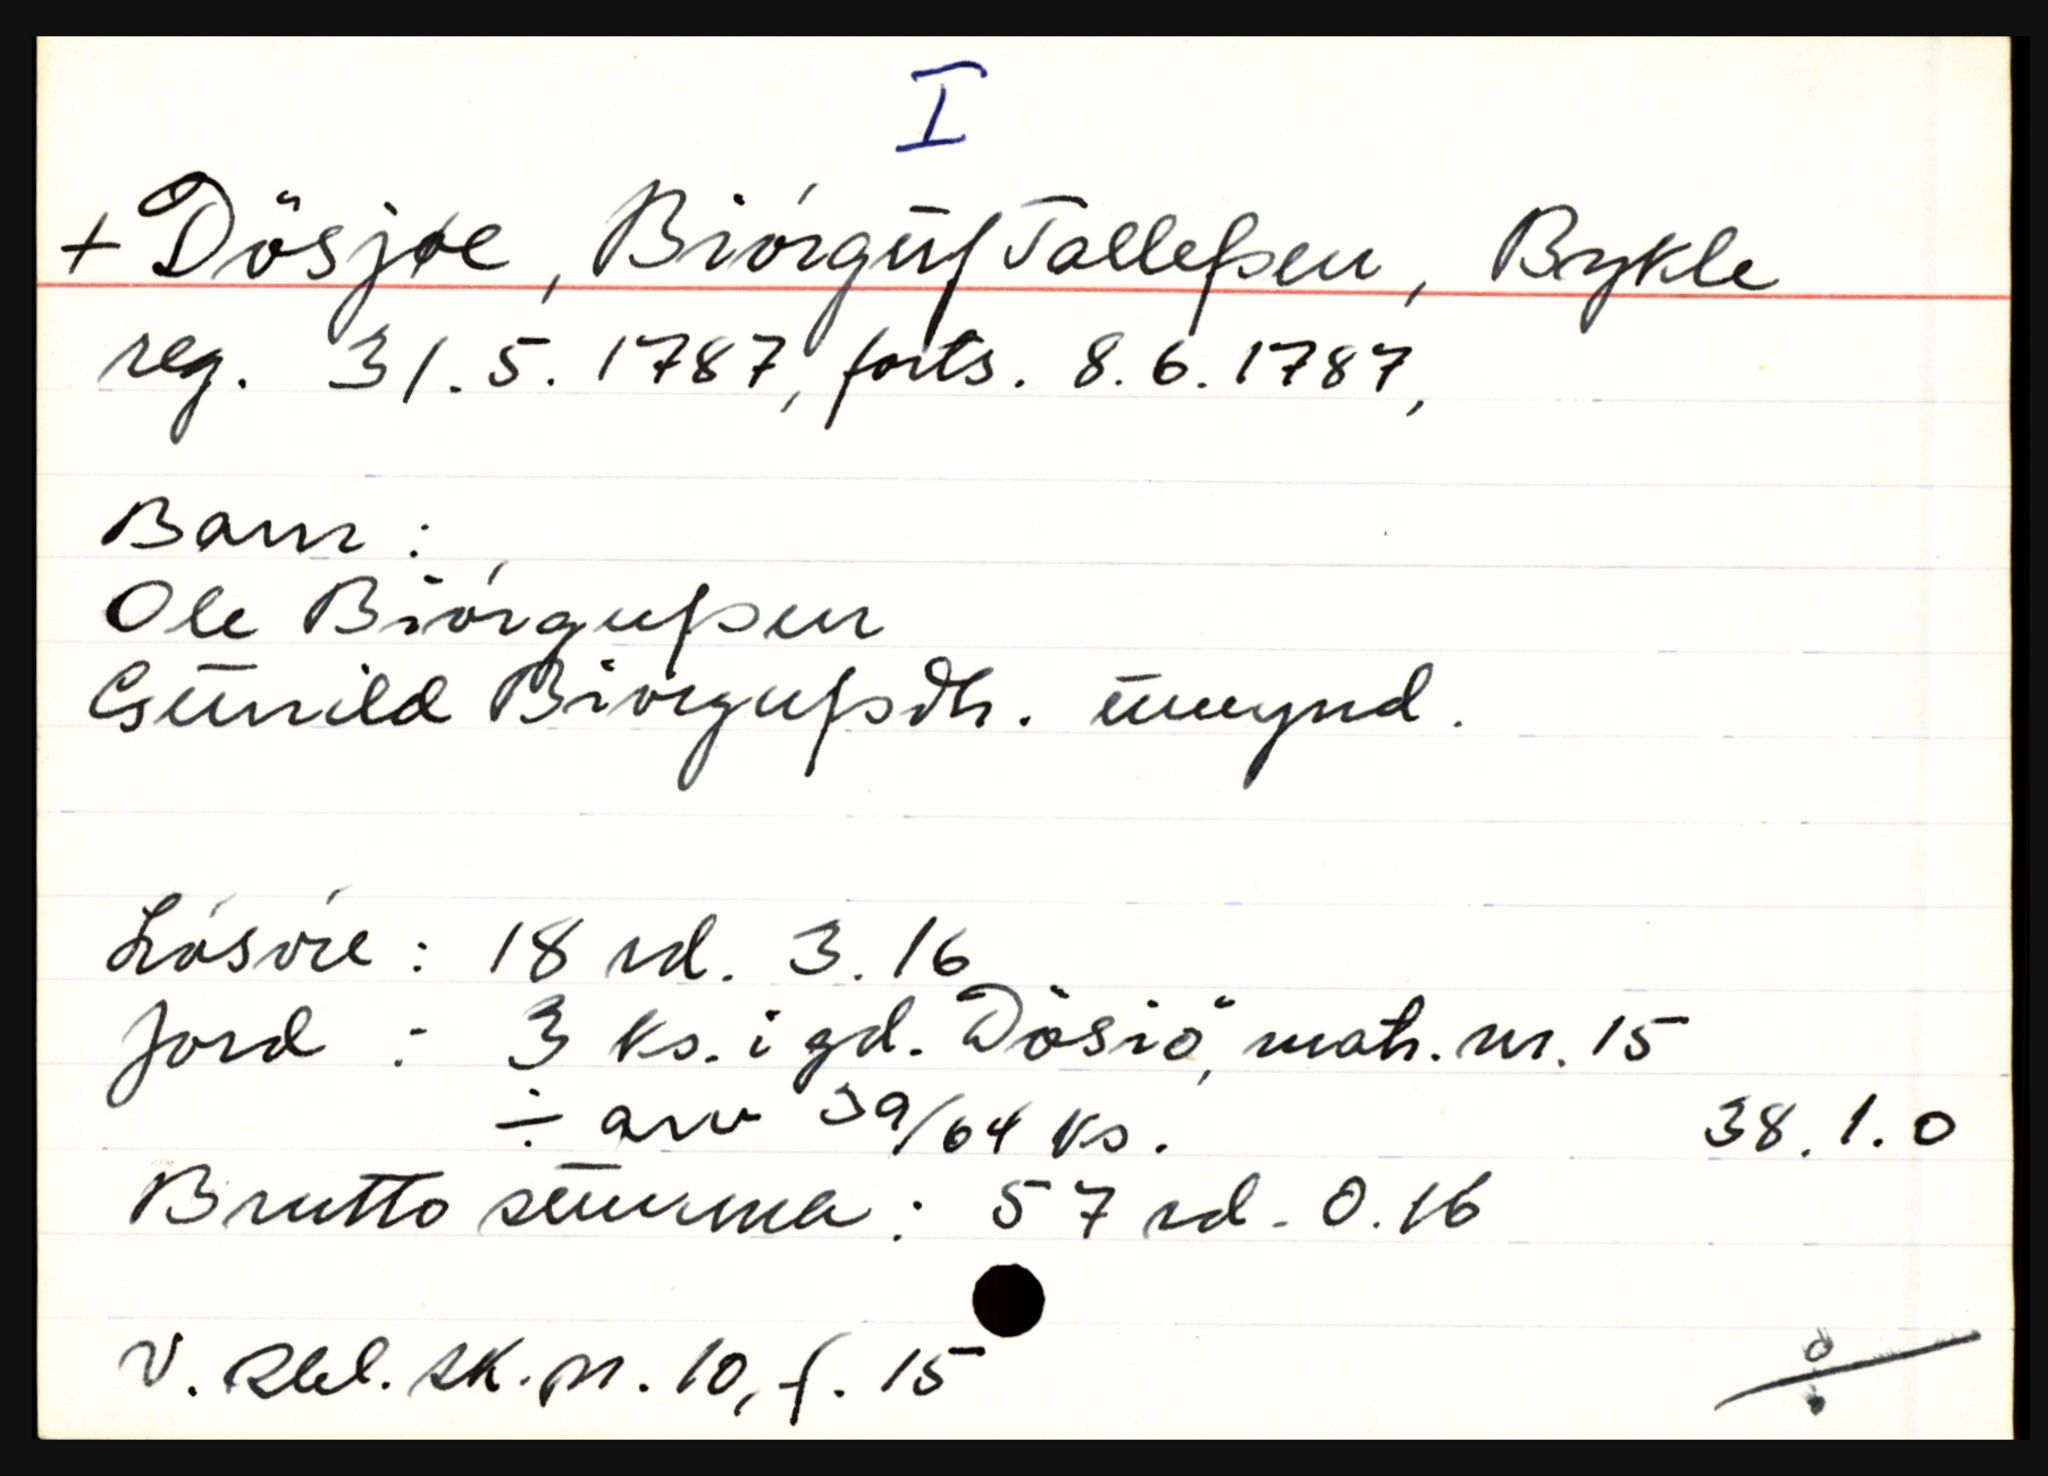 I
+ Dösjoe, Biórgūf Tallefsen, Bykle
reg. 31.5.1787, forts. 8.6.1787,
Barn:
Ole Biórgufsen
Gūnild Biörgufsdtr. ūmynd.
Lósóre: 18 rd. 3.16
Jord : 3 ks. i gd. Dösiö, matr. nr. 15
÷ arv 39/64 ks. 38.1.0
Brutto sūmma: 57 rd. 0.16
V. Rbl. sk. pr. 10, f. 15